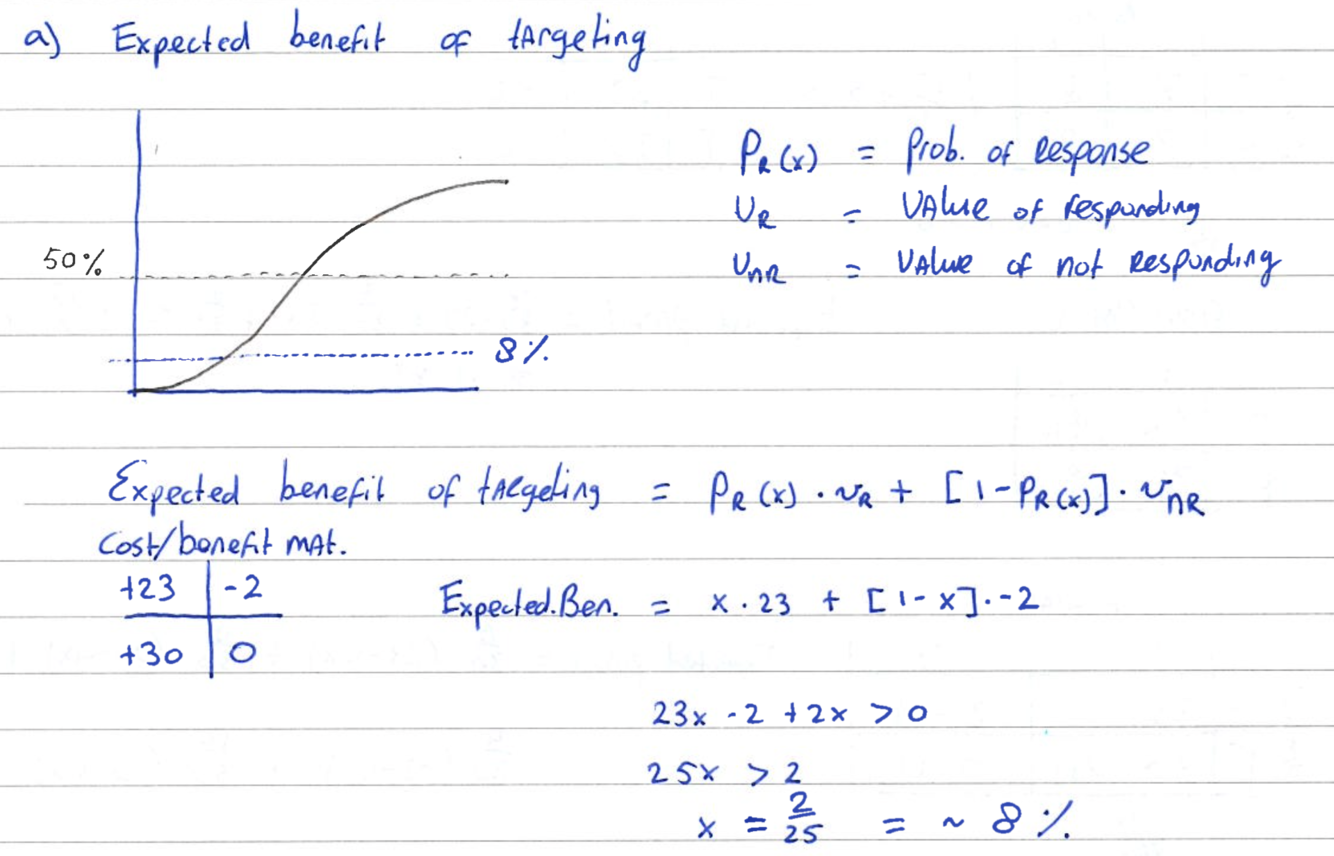 a) Expected benefit of targeting
PR(x) = Prob. of Response
UR = Value of responding
50%
UnR = Value of not Responding
8%
Expected benefit of targeting = PR(x) · vR + [1-PR(x)] · vnR
Cost/benefit mat.
+23 -2
Expected.Ben. = x · 23 + [1-x] · -2
+30 0
23x - 2 + 2x > 0
25x > 2
x = 2/25 = ~ 8%